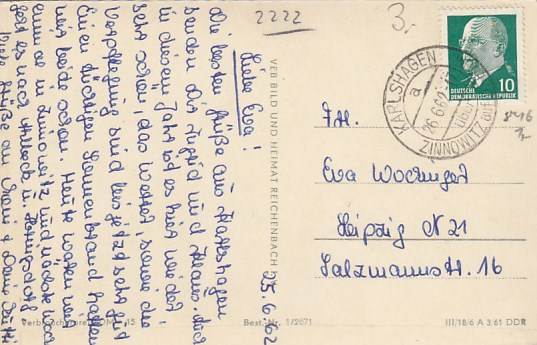 2222
3.-
Liebe Eva!
Die besten Grüße aus Karlshagen
senden Dir Sigrid und Klaus. Auch
in diesem Jahr ist es hier wieder
sehr schön, das Wetter, sowie die
Verpflegung sind bis jetzt sehr gut
Einen tüchtigen Sonnenbrand hatten
wir beide schon. Heute waren wir
in Zinnowitz und nächste Woche
geht es nach
Viele Grüße an
25.6.62
VEB BILD UND HEIMAT REICHENBACH
Verbraucherpreis DM 15
Best. Nr. 1/2671
III/18/6 A 3/61 DDR
KARLSHAGEN
a
26.6.62
ZINNOWITZ
10
DEUTSCHE
DEMOKRATISCHE REPUBLIK
Frl.
Eva Wocinger
Leipzig N 21
Salzmannstr. 16